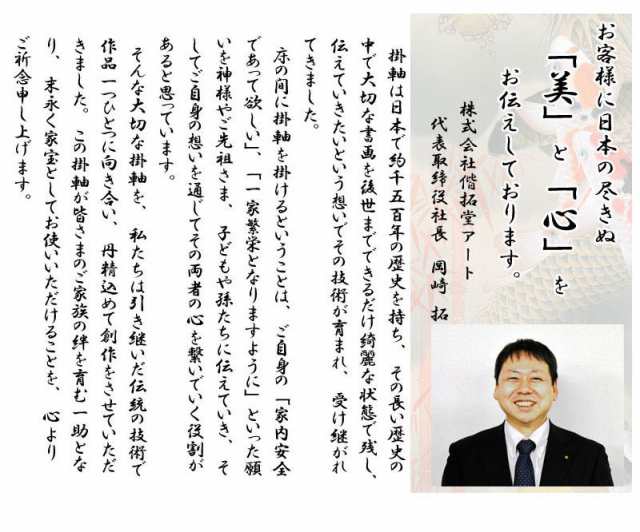 お客様に日本の尽きぬ
「美」と「心」を
お伝えしております。
株式会社偕拓堂アート
代表取締役社長 岡崎 拓
掛軸は日本で約千五百年の歴史を持ち、その長い歴史の
中で大切な書画を後世までできるだけ綺麗な状態で残し、
伝えていきたいという想いでその技術が育まれ、受け継がれ
てきました。
床の間に掛軸を掛けるということは、ご自身の「家内安全
であって欲しい」、「一家繁栄となりますように」といった願
いを神様やご先祖さま、子どもや孫たちに伝えていき、そ
してご自身の想いを通じてその両者の心を繋いでいく役割が
あると思っています。
そんな大切な掛軸を、私たちは引き継いだ伝統の技術で
作品一つひとつに向き合い、丹精込めて創作をさせていただ
きました。この掛軸が皆さまのご家族の絆を育む一助とな
り、末永く家宝としてお使いいただけることを、心より
ご祈念申し上げます。